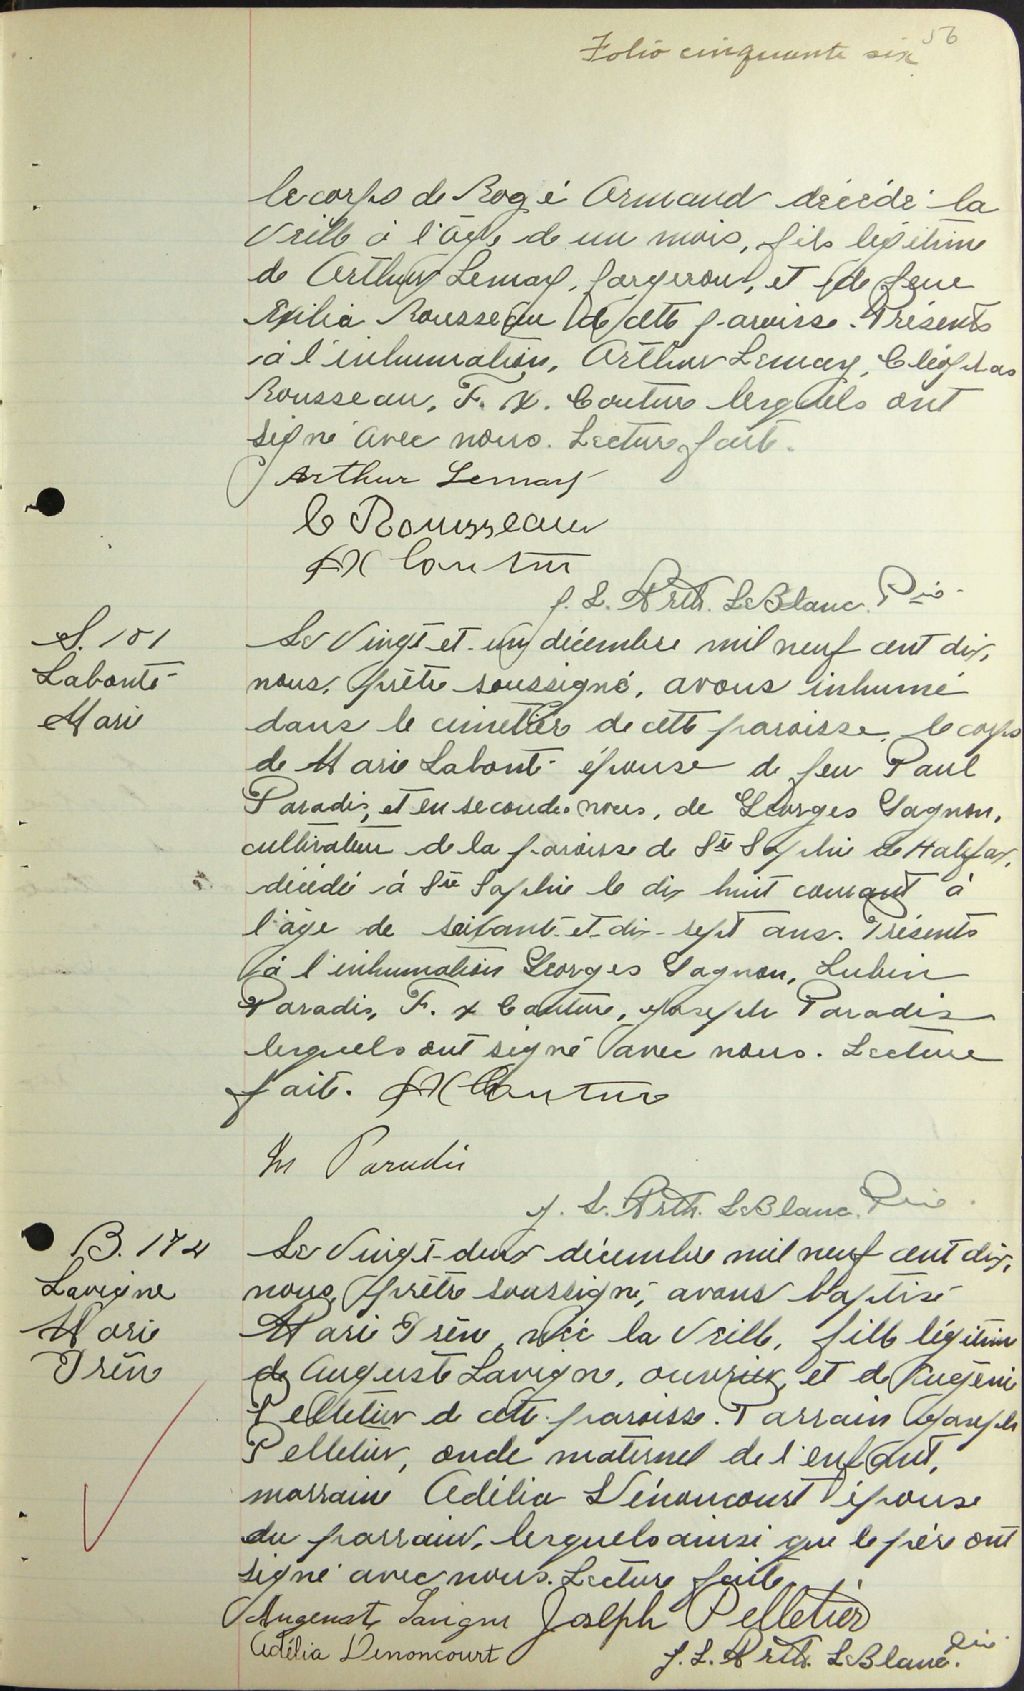 56
Folio cinquante six
le corps de Rogé Armand décédé la
veille à l'âge de un mois, fils légitime
de Arthur Lemay, forgeron, et de feue
Exilia Rousseau de cette paroisse. Présents
à l'inhumation, Arthur Lemay, Cléophas
Rousseau, F. X. Couture lesquels ont
signé avec nous. Lecture faite.
Arthur Lemay
C Rousseau
FX Couture
J. L. Arth. LeBlanc. Ptre.
S. 101
Labonté
Marie
Le vingt et un décembre mil neuf cent dix,
nous, prêtre soussigné, avons inhumé
dans le cimetière de cette paroisse, le corps
de Marie Labonté épouse de feu Paul
Paradis, et en secondes noces, de Georges Gagnon,
cultivateur de la paroisse de Ste Sophie de Halifax,
décédé à Ste Sophie le dix huit courant à
l'âge de soixante-et-dix-sept ans. Présents
à l'inhumation Georges Gagnon, Lubin
Paradis, F. X Couture, Joseph Paradis
lesquels ont signé avec nous. Lecture
faite. FX Couture
Paradis
J. L. Arth. LeBlanc. Ptre.
B. 174
Lavigne
Marie
Irène
Le vingt-deux décembre mil neuf cent dix,
nous, prêtre soussigné, avons baptisé
Marie Irène, née la veille, fille légitime
de Auguste Lavigne, ouvrier, et de Eugénie
Pelletier de cette paroisse. Parrain Joseph
Pelletier, oncle maternel de l'enfant,
marraine Adélia Dénoncourt épouse
du parrain, lesquels ainsi que le père ont
signé avec nous. Lecture faite.
Augenst Lavigne Joseph Pelletier
Adélia Dénoncourt
J. L. Arth. LeBlanc. Ptre.